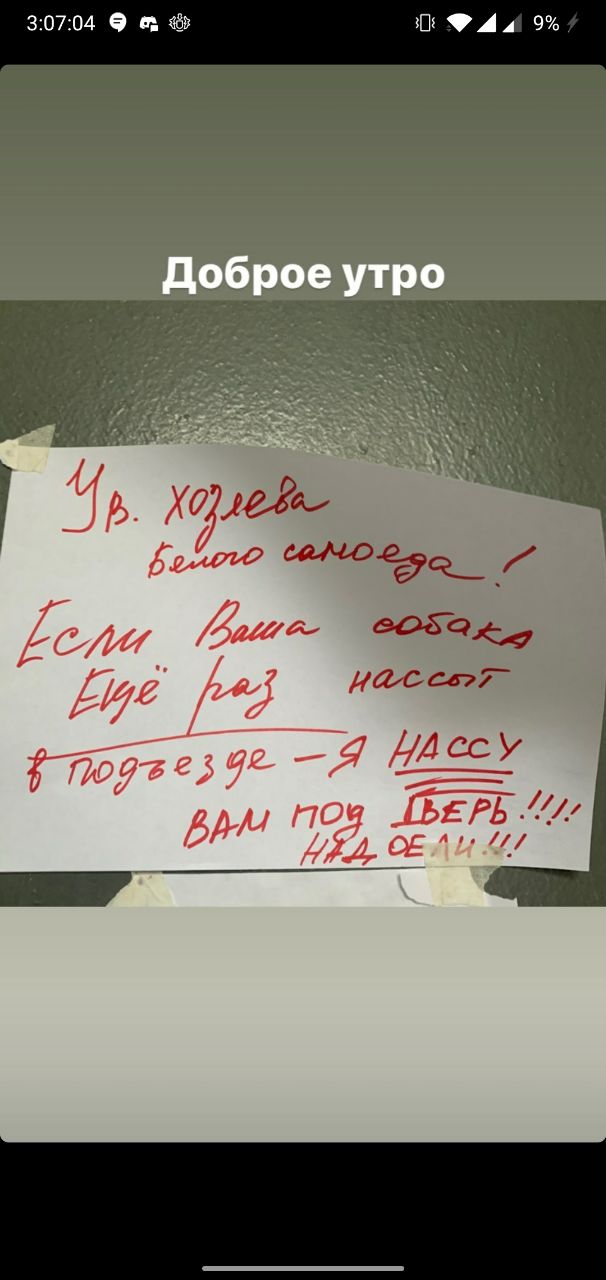 3:07:04 9%
Доброе утро
Ув. хозяева
белого самоеда!
Если Ваша собака
Ещё раз нассыт
в подъезде – Я НАССУ
ВАМ ПОД ДВЕРЬ!!!!
НАДОЕЛИ!!!